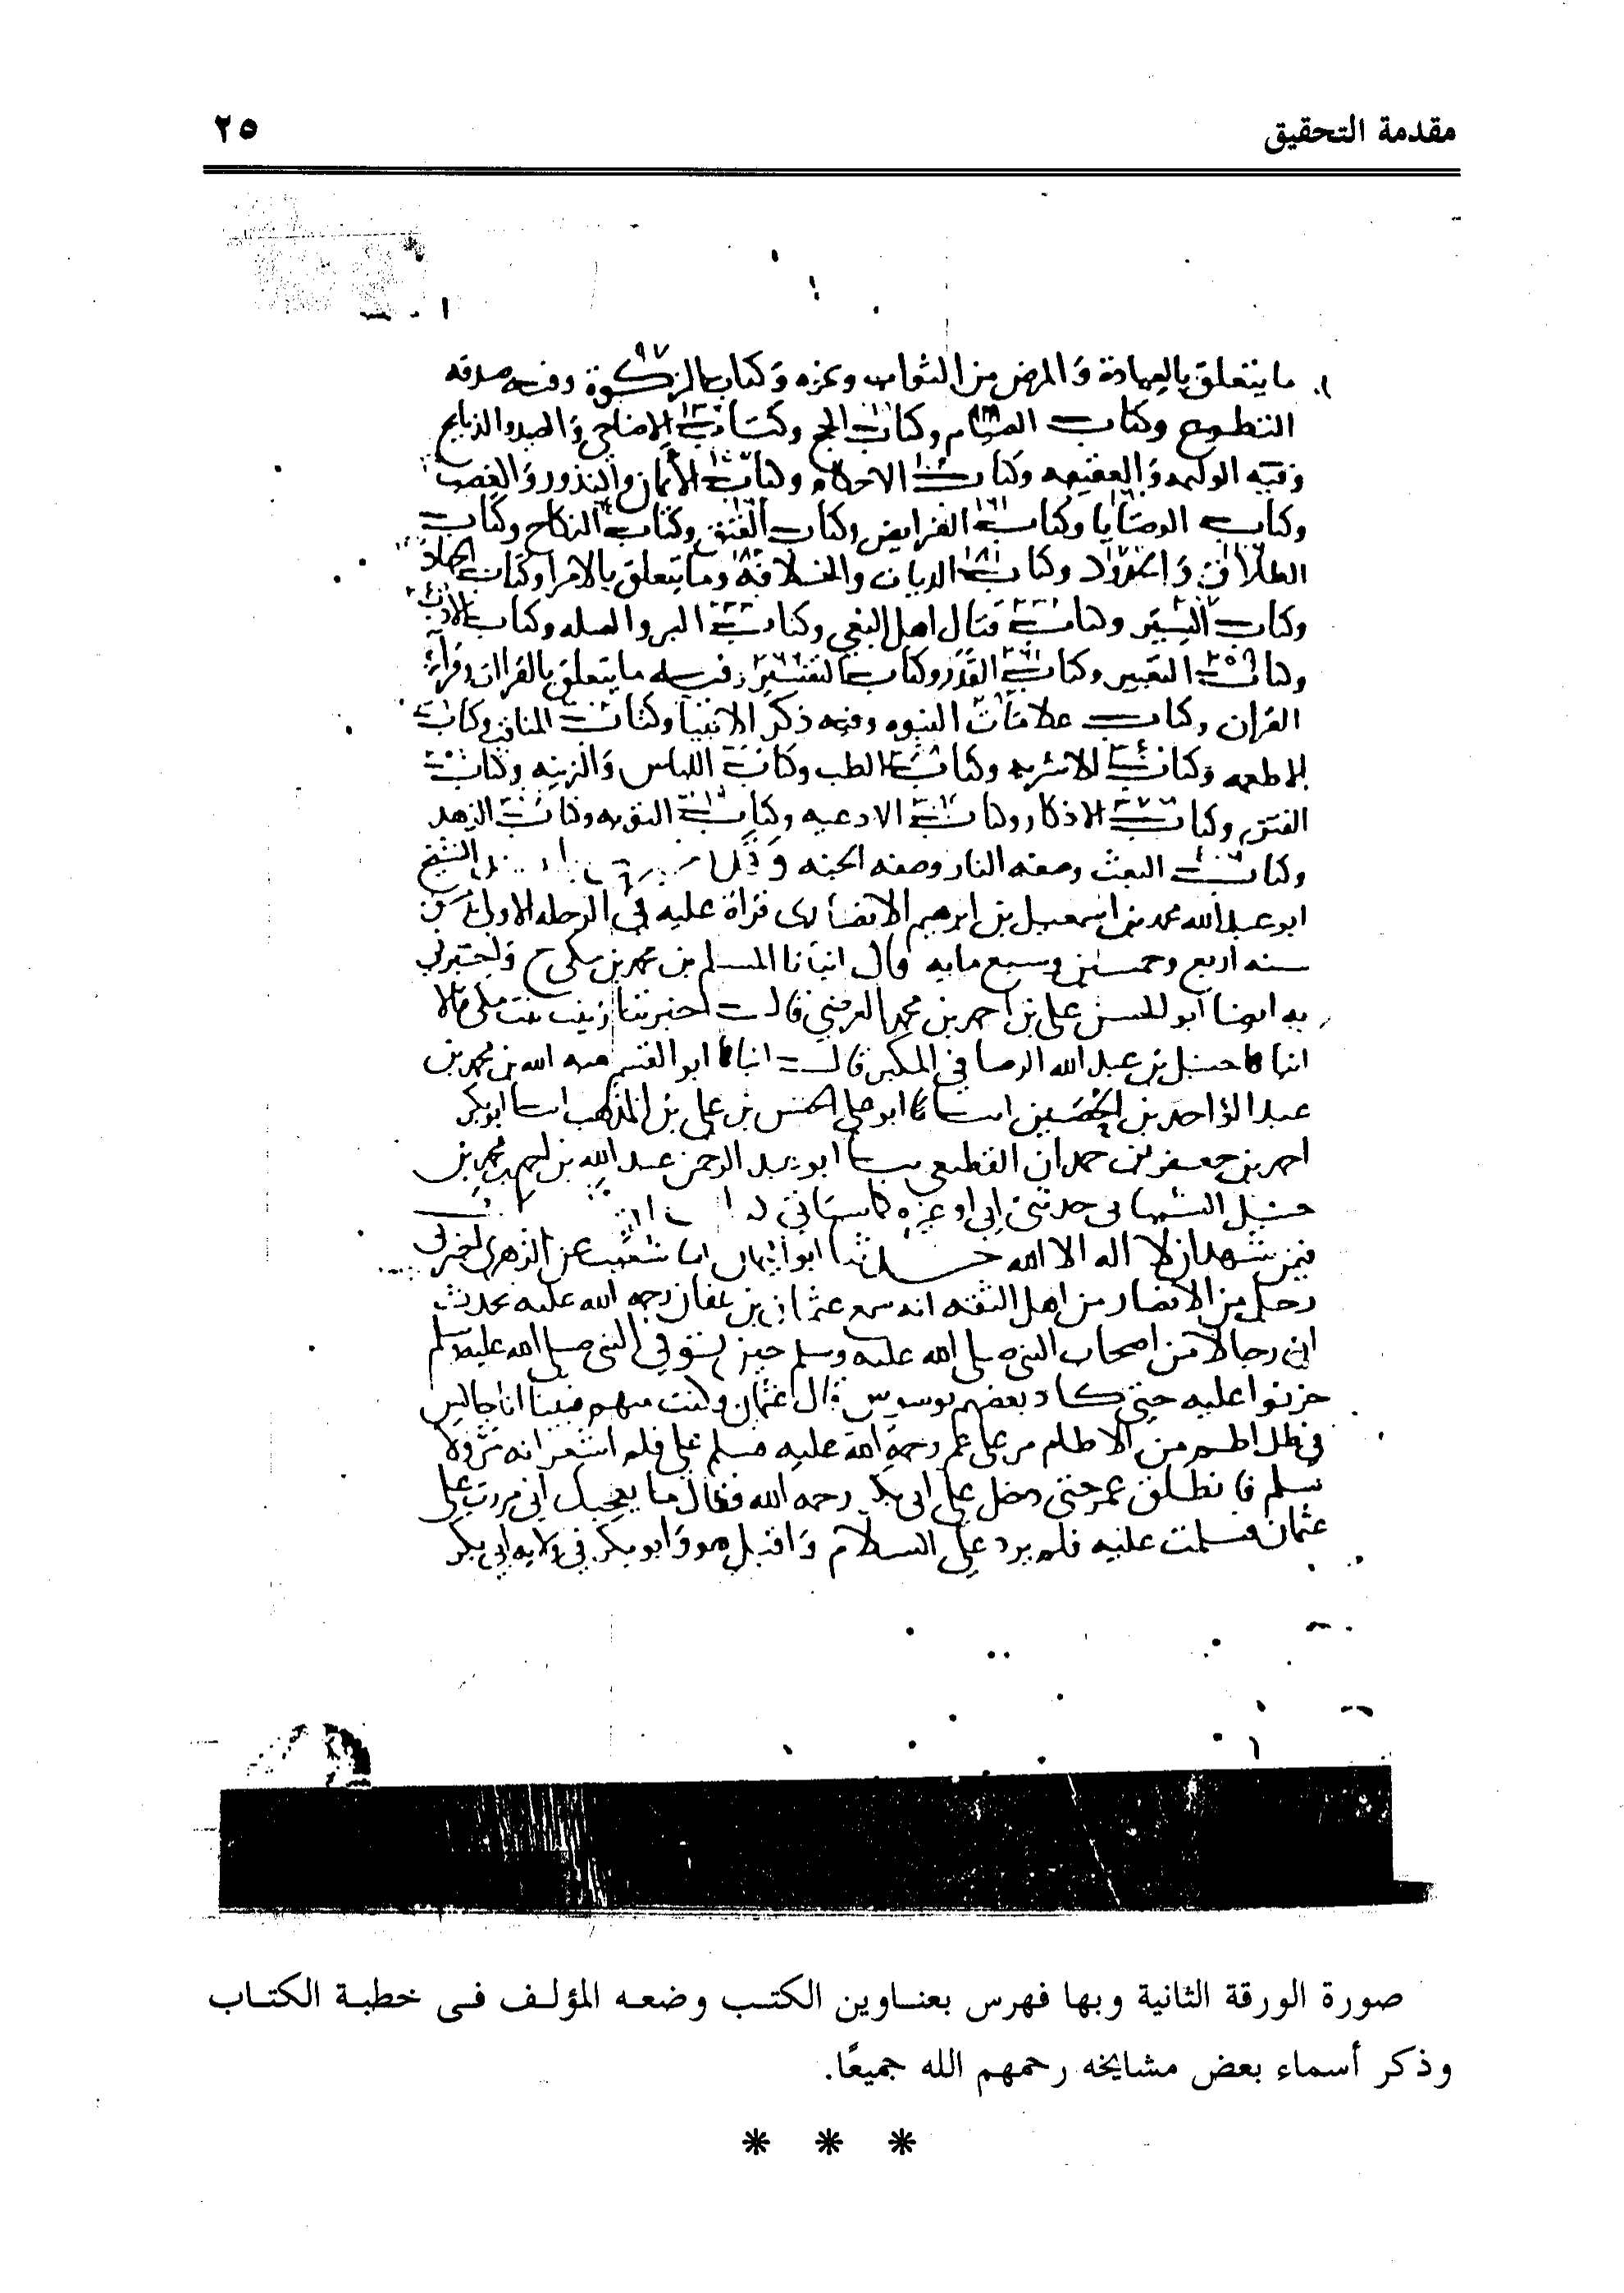 مقدمة التحقيق
٢٥
ما يتعلق بالعيادة والمرض من الثواب وغيره وكتاب الزكوة وفيه صدقه
التطوع وكتاب الصيام وكتاب الحج وكتاب الاضاحي والصيد والذبايح
وفيه الوليمه والعقيقه وكتاب الاحكام وكتاب الأيمان والنذور والغصب
وكتاب الوصايا وكتاب الفرايض وكتاب العتق وكتاب النكاح وكتاب
الطلاق والحدود وكتاب الديات والخلافة وما يتعلق بالامرا وكتاب الجهاد
وكتاب السير وكتاب قتال اهل البغي وكتاب البر والصله وكتاب الادب
وكتاب التعبير وكتاب القدر وكتاب التفسير وفيه ما يتعلق بالقران وقراءة
القران وكتاب علامات النبوه وفيه ذكر الانبيا وكتاب المناقب وكتاب
الاطعمه وكتاب الاشربه وكتاب الطب وكتاب اللباس والزينه وكتاب
الفتن وكتاب الاذكار وكتاب الادعيه وكتاب التوبه وكتاب الزهد
وكتاب البعث وصفه النار وصفه الجنه الشيخ
ابو عبد الله محمد بن اسمعيل بن ابرهيم الانصاري قراة عليه في الرحله الاولى
سنه اربع وخمسين وسبع مايه قال انبانا المسلم بن محمد بن مكي ح واخبرني
به ايضا ابو الحسن علي بن احمد بن محمد العرضي قالت اخبرتنا زينب بنت مكي قالا
انبانا حنبل بن عبد الله الرصافي المكبر قال انبانا ابو القسم هبه الله بن محمد بن
عبد الواحد بن الحصين انبانا ابو علي الحسن بن علي بن المذهب انبانا ابو بكر
احمد بن جعفر بن حمدان القطيعي ابو عبد الرحمن عبد الله بن احمد بن محمد بن
حنبل الشيباني حدثني ابي او غيره كما سياتي
فيمن شهد ان لا اله الا الله حدثنا ابو اليمان انا شعيب عن الزهري اخبرني
رجل من الانصار من اهل الثقه انه سمع عثمان بن عفان رحمه الله عليه يحدث
ان رجالا من اصحاب النبي صلى الله عليه وسلم حين توفي النبي صلى الله عليه وسلم
حزنوا عليه حتى كاد بعضهم يوسوس قال عثمان وكنت منهم فبينا انا جالس
في ظل اطم من الاطام مر علي عمر رحمة الله عليه فسلم علي فلم اشعر انه مر ولا
سلم فانطلق عمر حتى دخل على ابي بكر رحمه الله فقال ما يعجبك اني مررت على
عثمان فسلمت عليه فلم يرد علي السلام واقبل هو وابو بكر في ولايه ابي بكر
صورة الورقة الثانية وبها فهرس بعناوين الكتب وضعه المؤلف في خطبة الكتاب
وذكر أسماء بعض مشايخه رحمهم الله جميعًا.
* * *